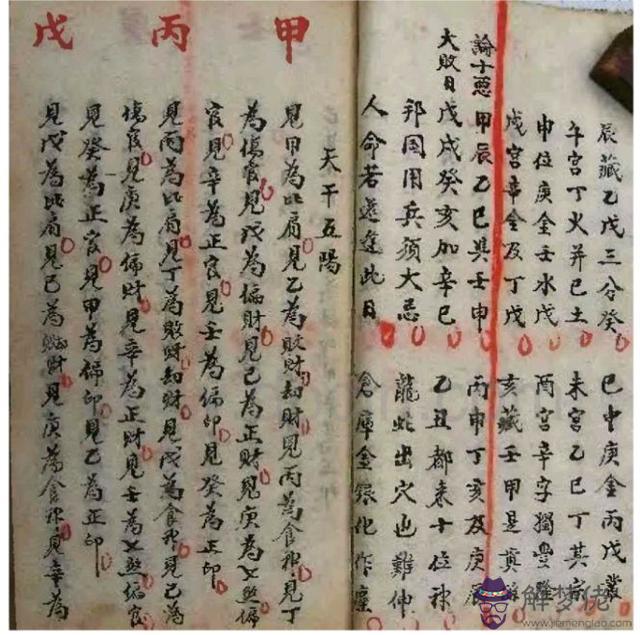 辰藏乙戊三分癸
巳中庚金丙戊叢
午宮丁火并己土
未宮乙己丁共宗
申位庚金壬水戊
酉宮辛字獨豐
戌宮辛金及丁戊
亥藏壬甲是真
論十惡
大敗日
甲辰乙巳與壬申
丙申丁亥及庚辰
戊戌癸亥加辛巳
乙丑都來十位神
邦国用兵須大忌
龍蛇出穴也難伸
人命若還逢此日
倉庫金銀化作塵
天干五陽
甲
見甲為比肩見乙為敗財劫財見丙為食神見丁
為傷官見戊為偏財見己為正財見庚為七煞偏
官見辛為正官見壬為偏印見癸為正印
丙
見丙為比肩見丁為敗財劫財見戊為食神見己為
傷官見庚為偏財見辛為正財見壬為七煞偏官
見癸為正官見甲為偏印見乙為正印
戊
見戊為比肩見己為財見庚為食神見辛為
解梦佬
www.jiemenglao.com